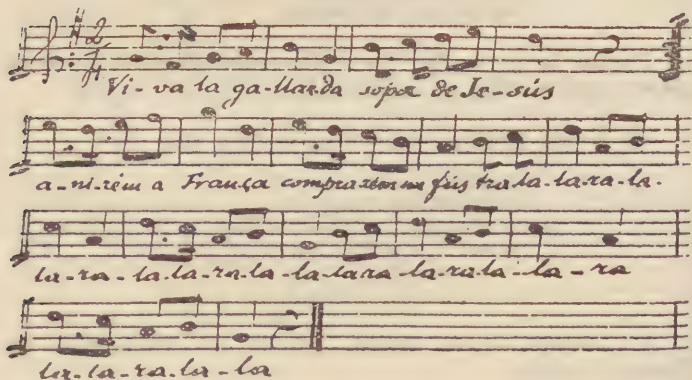 Vi-va la ga-llar-da sopa de Je-sús
a-ni-rém a França comprarem un fús tra la-la-ra-la.
la-ra-la-la-ra-la-la-la-ra la-ra la-la-ra
la-la-ra-la-la